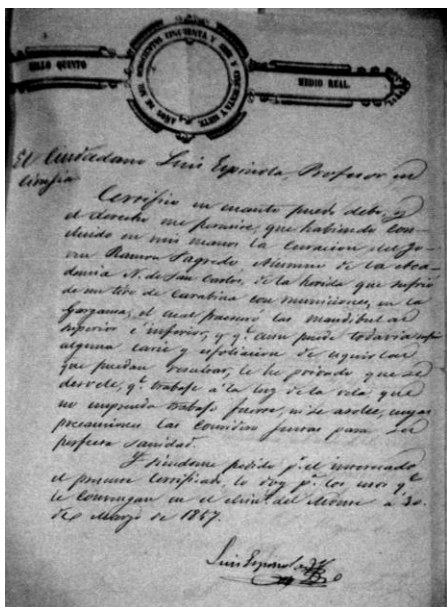 SELLO QUINTO
AÑOS DE MIL OCHOCIENTOS CINCUENTA Y SEIS Y CINCUENTA Y SIETE.
MEDIO REAL.
El Ciudadano Luis Espinola, Profesor en
Cirujia
Certifico en cuanto puedo debo, y
el derecho me permite, que habiendo con-
cluido en mis manos la curacion del Jo-
ven Ramon Sagredo Alumno de la Aca-
demia N. de San Carlos, de la herida que sufrió
de un tiro de Carabina con municiones, en la
Garganta, el cual fracturó las mandibulas
superior é inferior, y q.e aun puede todavia
alguna carie y esfoliacion de
que puedan resultar, le he privado que se
desvele, q.e trabaje á la luz de la vela, que
no emprenda trabajo fuerte, ni se asolee, cuyas
precauciones las considero justas para su
perfecta sanidad.
Y siendome pedido p.r el interesado
el presente Certificado, lo doy p.a los usos q.e
le convengan en el del Monte á 30
de Marzo de 1857.
Luis Espinola